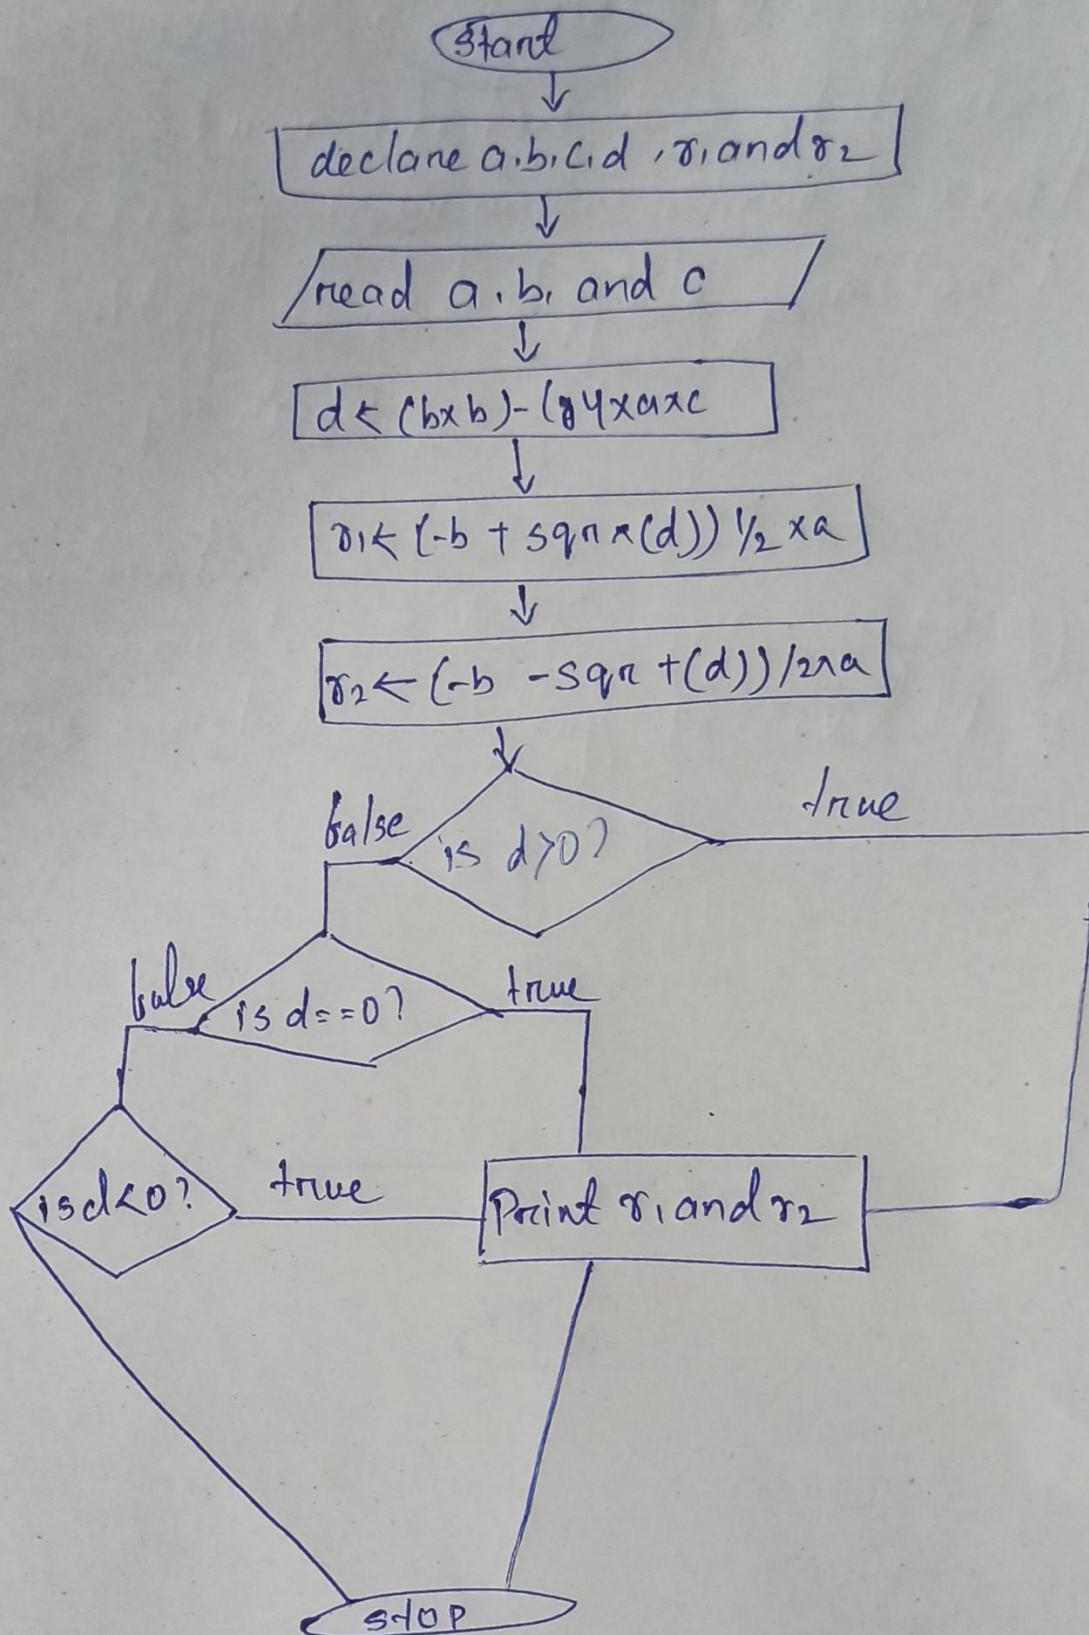 Start
declare a, b, c, d, r1 and r2
read a, b, and c
d ← (b×b)-(4×a×c
r1 ← (-b + sqr×(d)) 1/2 ×a
r2 ← (-b -sqr +(d))/2×a
is d>0?
true
false
is d==0?
true
false
is d<0?
true
Print r1 and r2
STOP